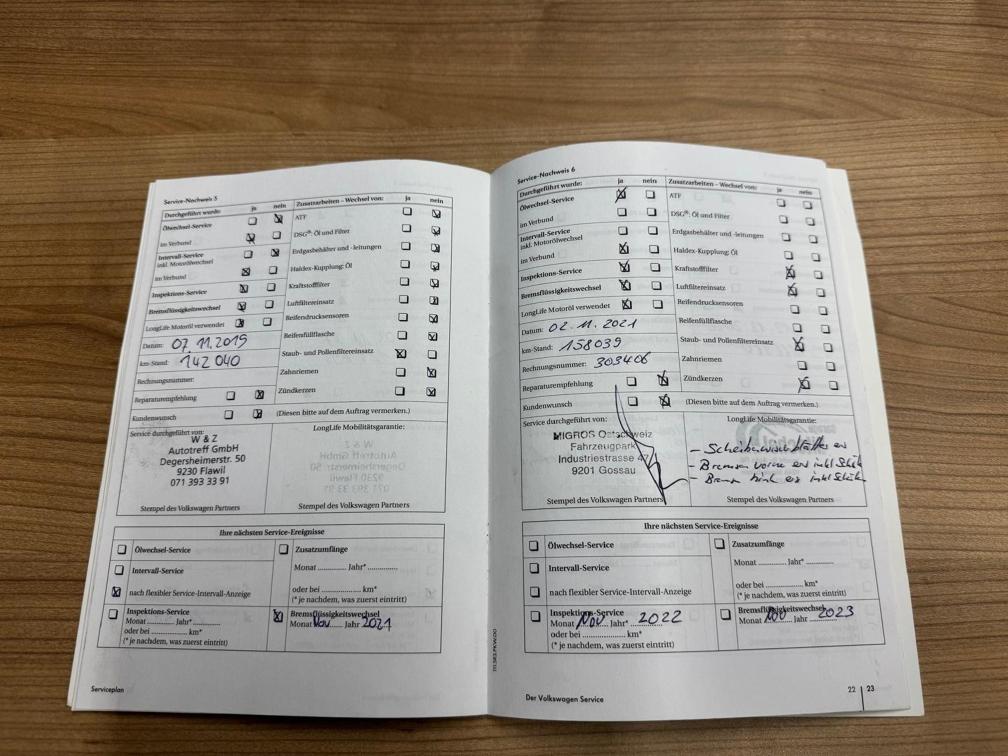 Service-Nachweis 5
Durchgeführt wurde: ja nein
Ölwechsel-Service
im Verbund
Intervall-Service
inkl. Motorölwechsel
im Verbund
Inspektions-Service
Bremsflüssigkeitswechsel
LongLife Motoröl verwendet
Datum: 07.11.2019
km-Stand: 142 040
Rechnungsnummer:
Reparaturempfehlung
Kundenwunsch
Zusatzarbeiten – Wechsel von: ja nein
ATF
DSG®: Öl und Filter
Erdgasbehälter und -leitungen
Haldex-Kupplung: Öl
Kraftstofffilter
Luftfiltereinsatz
Reifendrucksensoren
Reifenfüllflasche
Staub- und Pollenfiltereinsatz
Zahnriemen
Zündkerzen
(Diesen bitte auf dem Auftrag vermerken.)
Service durchgeführt von:
W & Z
Autotreff GmbH
Degersheimerstr. 50
9230 Flawil
071 393 33 91
Stempel des Volkswagen Partners
LongLife Mobilitätsgarantie:
Stempel des Volkswagen Partners
Ihre nächsten Service-Ereignisse
Ölwechsel-Service
Intervall-Service
nach flexibler Service-Intervall-Anzeige
Zusatzumfänge
Monat ............ Jahr* ..............
oder bei ..................... km*
(* je nachdem, was zuerst eintritt)
Inspektions-Service
Monat ............ Jahr* ............
oder bei ..................... km*
(* je nachdem, was zuerst eintritt)
Bremsflüssigkeitswechsel
Monat Nov Jahr 2021
Serviceplan
Service-Nachweis 6
Durchgeführt wurde: ja nein
Ölwechsel-Service
im Verbund
Intervall-Service
inkl. Motorölwechsel
im Verbund
Inspektions-Service
Bremsflüssigkeitswechsel
LongLife Motoröl verwendet
Datum: 02.11.2021
km-Stand: 158039
Rechnungsnummer: 303406
Reparaturempfehlung
Kundenwunsch
Zusatzarbeiten – Wechsel von: ja nein
ATF
DSG®: Öl und Filter
Erdgasbehälter und -leitungen
Haldex-Kupplung: Öl
Kraftstofffilter
Luftfiltereinsatz
Reifendrucksensoren
Reifenfüllflasche
Staub- und Pollenfiltereinsatz
Zahnriemen
Zündkerzen
(Diesen bitte auf dem Auftrag vermerken.)
Service durchgeführt von:
MIGROS Ostschweiz
Fahrzeugpark
Industriestrasse 47
9201 Gossau
Stempel des Volkswagen Partners
LongLife Mobilitätsgarantie:
- Scheibenwischblätter
- Bremsen vorne ers inkl
- ers inkl
Stempel des Volkswagen Partners
Ihre nächsten Service-Ereignisse
Ölwechsel-Service
Intervall-Service
nach flexibler Service-Intervall-Anzeige
Zusatzumfänge
Monat ............ Jahr* ..............
oder bei ..................... km*
(* je nachdem, was zuerst eintritt)
Inspektions-Service
Monat Nov Jahr* 2022
oder bei ..................... km*
(* je nachdem, was zuerst eintritt)
Bremsflüssigkeitswechsel
Monat Nov Jahr 2023
Der Volkswagen Service
22 | 23